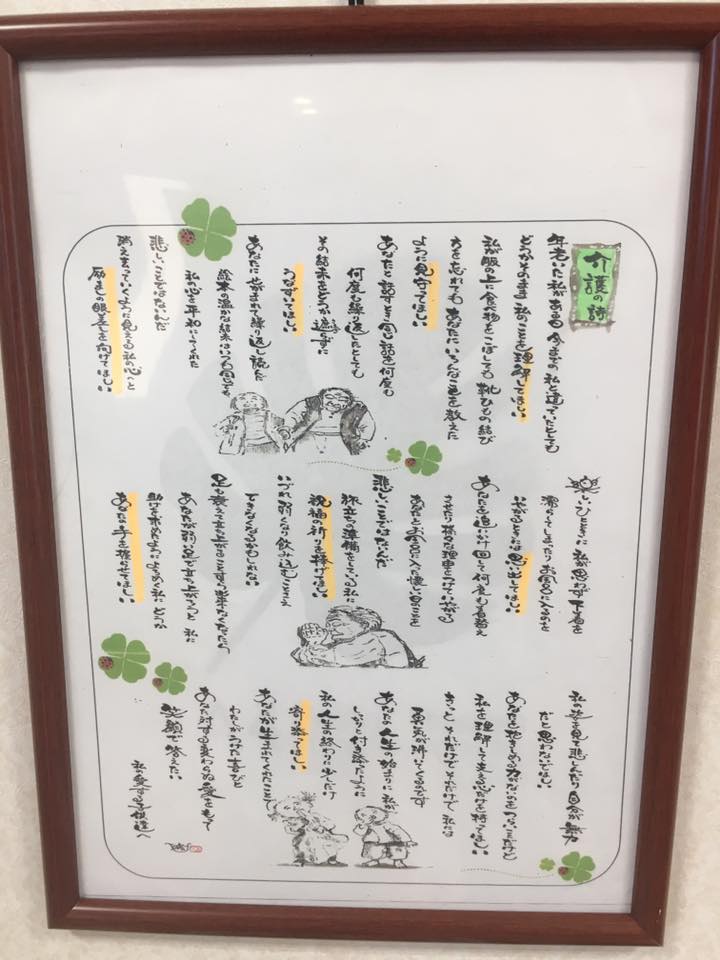 介護の詩
年老いた私がある日 今までの私と違っていたとしても
どうかそのままの私のことを理解して下さい
私が服の上に食べ物をこぼしても 靴ひもの結び
方を忘れても あなたにいろんなことを教えた
ように見守って下さい
あなたと話すとき 同じ話を何度も
何度も繰り返したとしても
その結末をどうか遮らずに
うなずいて下さい
あなたにせがまれて繰り返し読んだ
絵本の温かな結末はいつも同じでも
私の心を平和にしてくれた
悲しいことではないんだ
消えさっていくように見える私の心へと
励ましの眼差しを向けて下さい
楽しいひとときに 私が思わず下着を
濡らしてしまったり お風呂に入るのを
いやがるときは思い出して下さい
あなたを追い回し 何度も着替え
させたり 様々な理由をつけて いやがる
あなたとお風呂に入った懐かしい日のことを
悲しいことではないんだ
旅立ちの準備をしている私に
祝福の祈りを捧げて下さい
いずれ歯も弱り 飲み込むことさえ
出来なくなるかもしれない
足も衰えて立ち上がることすら出来なくなったら
あなたがか弱い足で立ち上がろうと 私に
助けを求めたように よろめく私に どうか
あなたの手を握らせて下さい
私の姿を見て悲しんだり 自分が無力
だと思わないで下さい
あなたを抱きしめる力がないのを知るのはつらいけど
私を理解して支えてくれる心だけを持って下さい
きっと それだけで それだけで 私には
勇気がわいてくるのです
あなたの人生の始まりに 私が
しっかりと付き添ったように
私の人生の終わりに少しだけ
付き添って下さい
あなたが生まれてくれたことで
私が受けた喜びと
あなたに対する変わらぬ愛を持って
笑顔で答えたい
私の愛する子供達へ